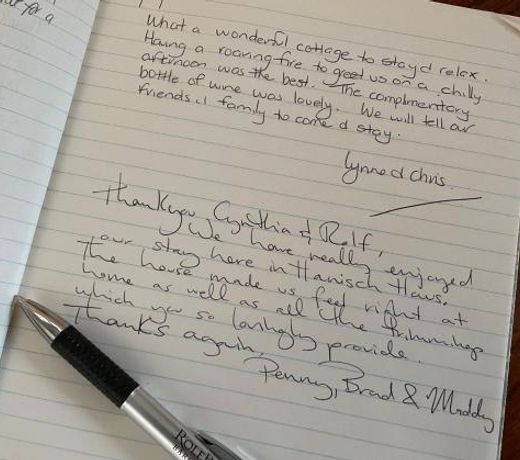 for a
What a wonderful cottage to stay & relax.
Having a roaring fire to greet us on a chilly
afternoon was the best. The complimentary
bottle of wine was lovely. We will tell our
friends & family to come & stay.
Lynne & Chris.
Thankyou Cynthia & Rolf,
We have really enjoyed
our stay here in Hanisch Haus.
The house made us feel right at
home as well as all the trimmings
which you so lovingly provide.
Thanks again.
Penny, Brad & Maddy